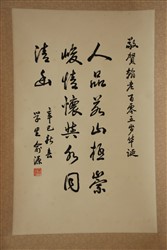 敬贺翰老百零五岁华诞
人品若山极崇
峻情怀与水同
清幽
辛巳秋长
学生俞源